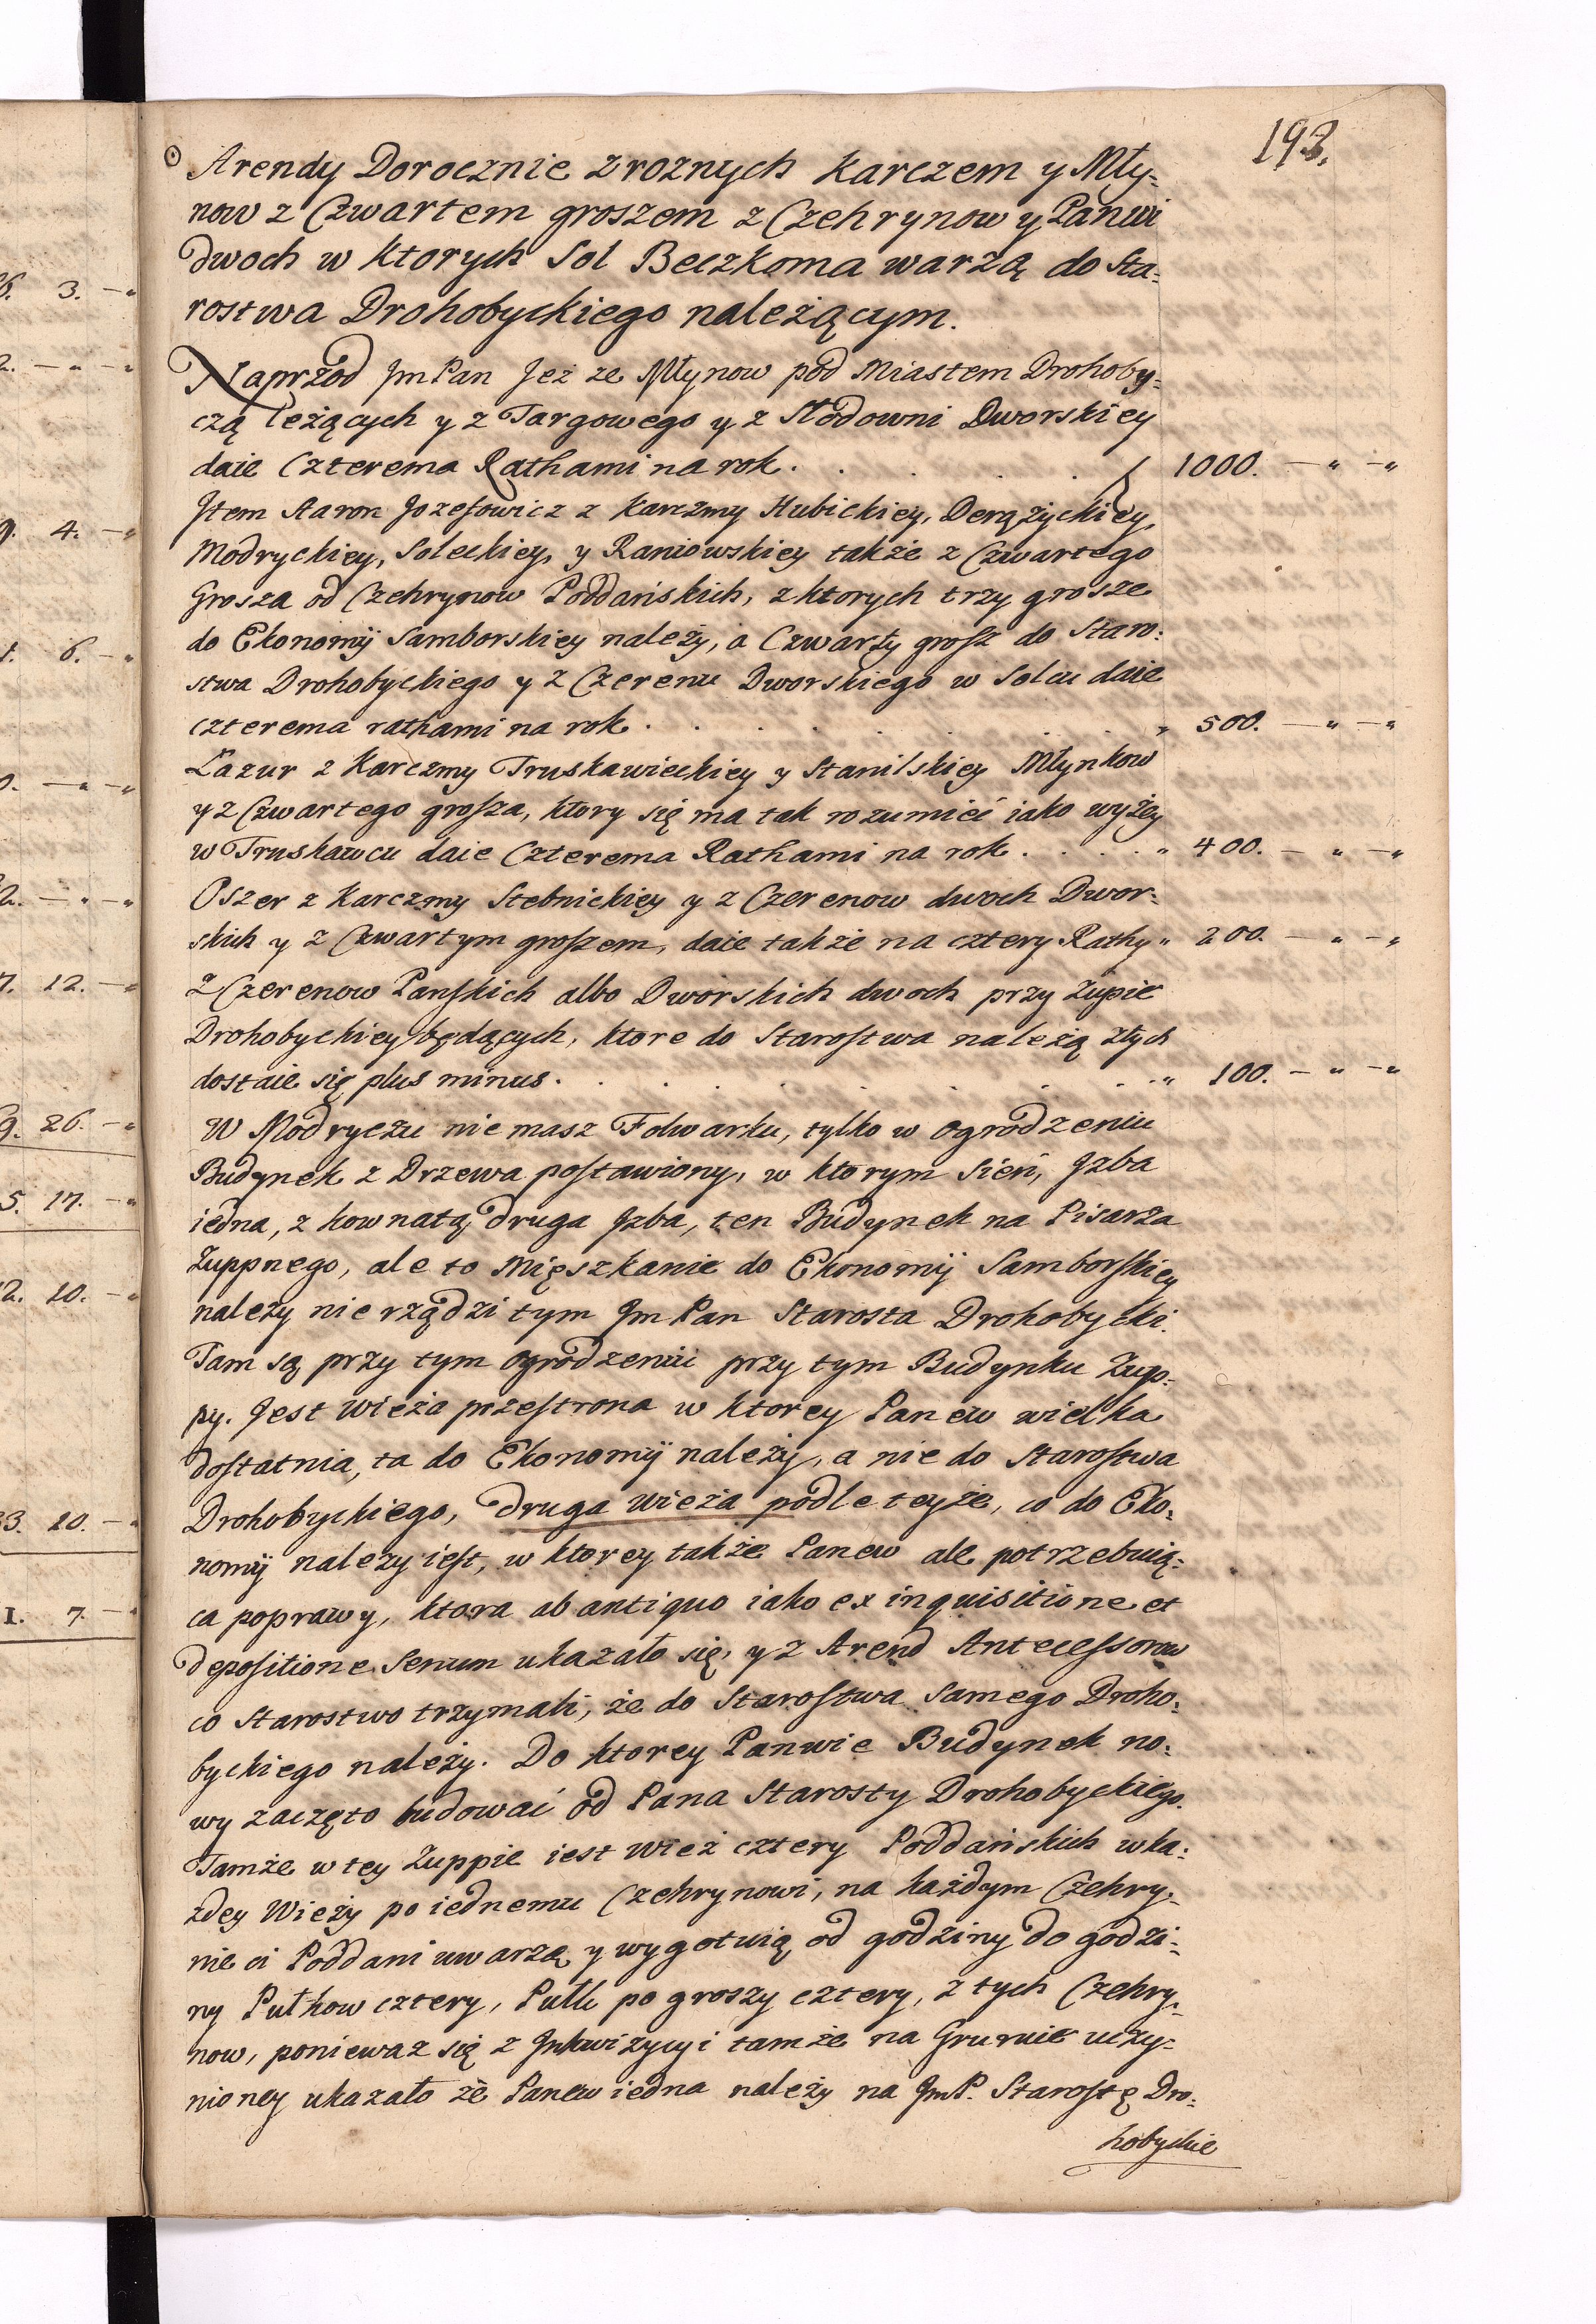 193.
Arendy Dorocznie z roznych Karczem y Mły-
now z Czwartem groszem z Czehrynow y Panwi
dwoch w ktorych Sol Beczkoma warzą do Sta-
rostwa Drohobyckiego należącym.
Naprzod Jm Pan Jeż ze Młynow pod Miastem Drohoby-
czą leżących y z Targowego y z Słodowni Dworskiey
daie Czterema Rathami na rok . . . 1000. — " — "
Jtem Aaron Jozefowicz z Karczmy Hubickiey, Derążyckiey,
Modryckiey, Soleckiey, y Raniowskiey także z Czwartego
Grosza od Czehrynow Poddańskich, z ktorych trzy grosze
do Ekonomij Samborskiey należy, a Czwarty grosz do Staro-
stwa Drohobyckiego y z Czerenu Dworskiego w Solcu daie
czterema rathami na rok . . . " 500. — " — "
Łazur z Karczmy Truskawieckiey y Stanilskiey Młynkow
y z Czwartego grosza, ktory się ma tak rozumieć iako wyżey
w Truskawcu daie Czterema Rathami na rok . . . . . " 400. — " — "
Oszer z Karczmy Stebnickiey y z Czerenow dwoch Dwor-
skich y z Czwartym groszem, daie także na cztery Rathy " 200. — " — "
Z Czerenow Panskich albo Dworskich dwoch przy Zupie
Drohobyckiey będących, ktore do Starostwa należą złych
dostaie się plus minus . . . " 100. — " — "
W Modryczu nie masz Folwarku, tylko w ogrodzeniu
Budynek z Drzewa postawiony, w ktorym Sień, Jzba
iedna, z kownatą druga Jzba, ten Budynek na Pisarza
Zuppnego, ale to Mięszkanie do Ekonomij Samborskiey
należy nie rządzi tym Jm Pan Starosta Drohobycki.
Tam są przy tym ogrodzeniu przy tym Budynku Zup-
py. Jest Wieża przestrona w ktorey Panew wielka
dostatnia, ta do Ekonomij należy, a nie do Starostwa
Drohobyckiego, druga wieża podle teyże, co do Eko-
nomij należy iest, w ktorey także Panew ale potrzebuią-
ca poprawy, ktora ab antiquo iako ex inquisitione et
depositione Senum ukazało się, y z Arend Antecessorow
co Starostwo trzymali, że do Starostwa Samego Droho-
byckiego należy. Do ktorey Panwie Budynek no-
wy zaczęto budować od Pana Starosty Drohobyckiego.
Tamże w tey Zuppie iest Wież cztery Poddańskich w ka-
zdey Wieży po iednemu Czehrynowi, na każdym Czehry-
nie ci Poddani uwarzą y wygotuią od godziny do godzi-
ny Pułkow cztery, Pułk po groszy cztery, z tych Czehry-
now, poniewaz się z Jnkwizycyi tamże na Gruncie uczy-
nioney ukazało że Panew iedna należy na JmP. Starostę Dro-
hobyckie